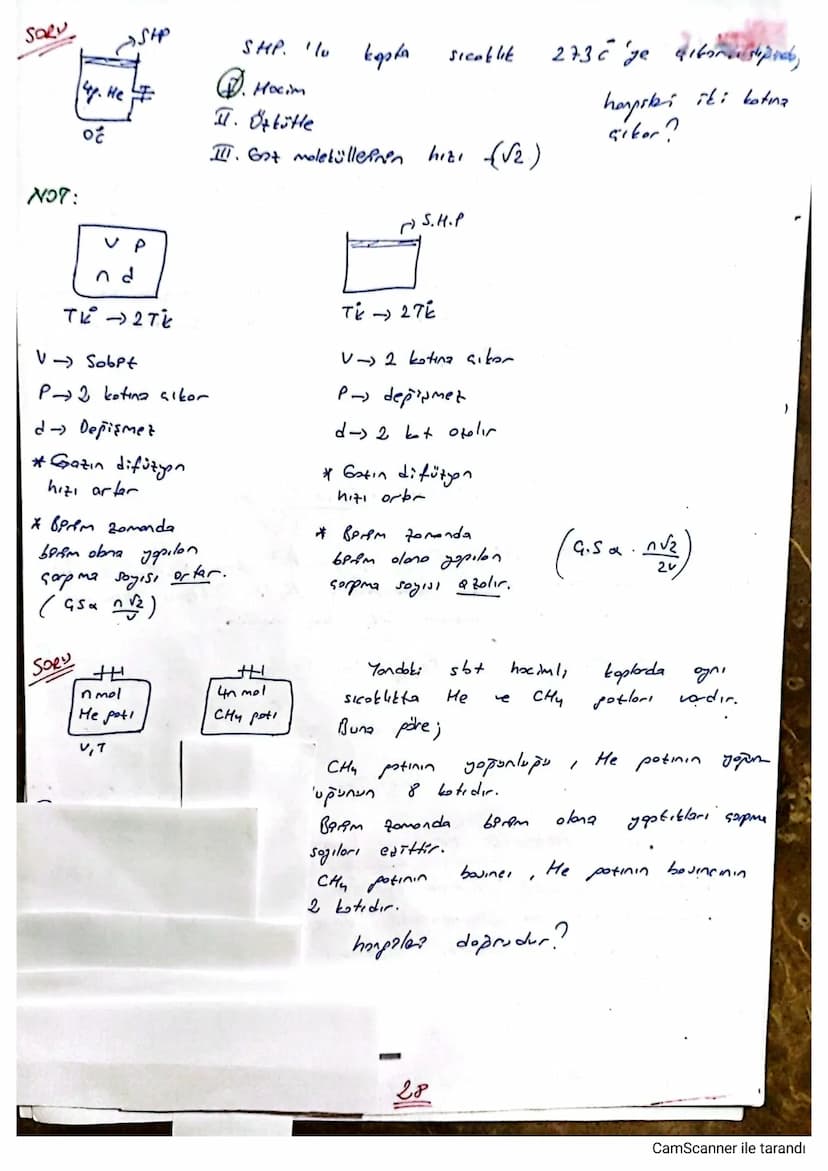 SORU
SHP
4g. He
0°C
SHP. 'lu kapta sıcaklık 273°C 'ye
I. Hacim
II. Özkütle
III. Gaz moleküllerinin hızı (√2)
hangileri iki katına
çıkar?
NOT:
V P
n d
TK° → 2TK
V → Sabit
P → 2 katına çıkar
d → Değişmez
* Gazın difüzyon
hızı artar
* Birim zamanda
birim alana yapılan
çarpma sayısı artar.
(GSα n√2/V)
S.H.P
TK → 2TK
V → 2 katına çıkar
P → değişmez
d → 2 kat azalır
* Gazın difüzyon
hızı artar
* Birim zamanda
birim alana yapılan
çarpma sayısı azalır.
(G.Sα . n√2/2V)
SORU
n mol
He gazı
V,T
4n mol
CH4 gazı
Yandaki sbt hacimli, kaplarda aynı
sıcaklıkta He ve CH4 gazları vardır.
Buna göre;
CH4 gazının yoğunluğu, He gazının yoğun
uğunun 8 katıdır.
Birim zamanda birim alana yaptıkları çarpma
sayıları eşittir.
CH4 gazının basıncı, He gazının basıncının
2 katıdır.
hangileri doğrudur?
28
CamScanner ile tarandı